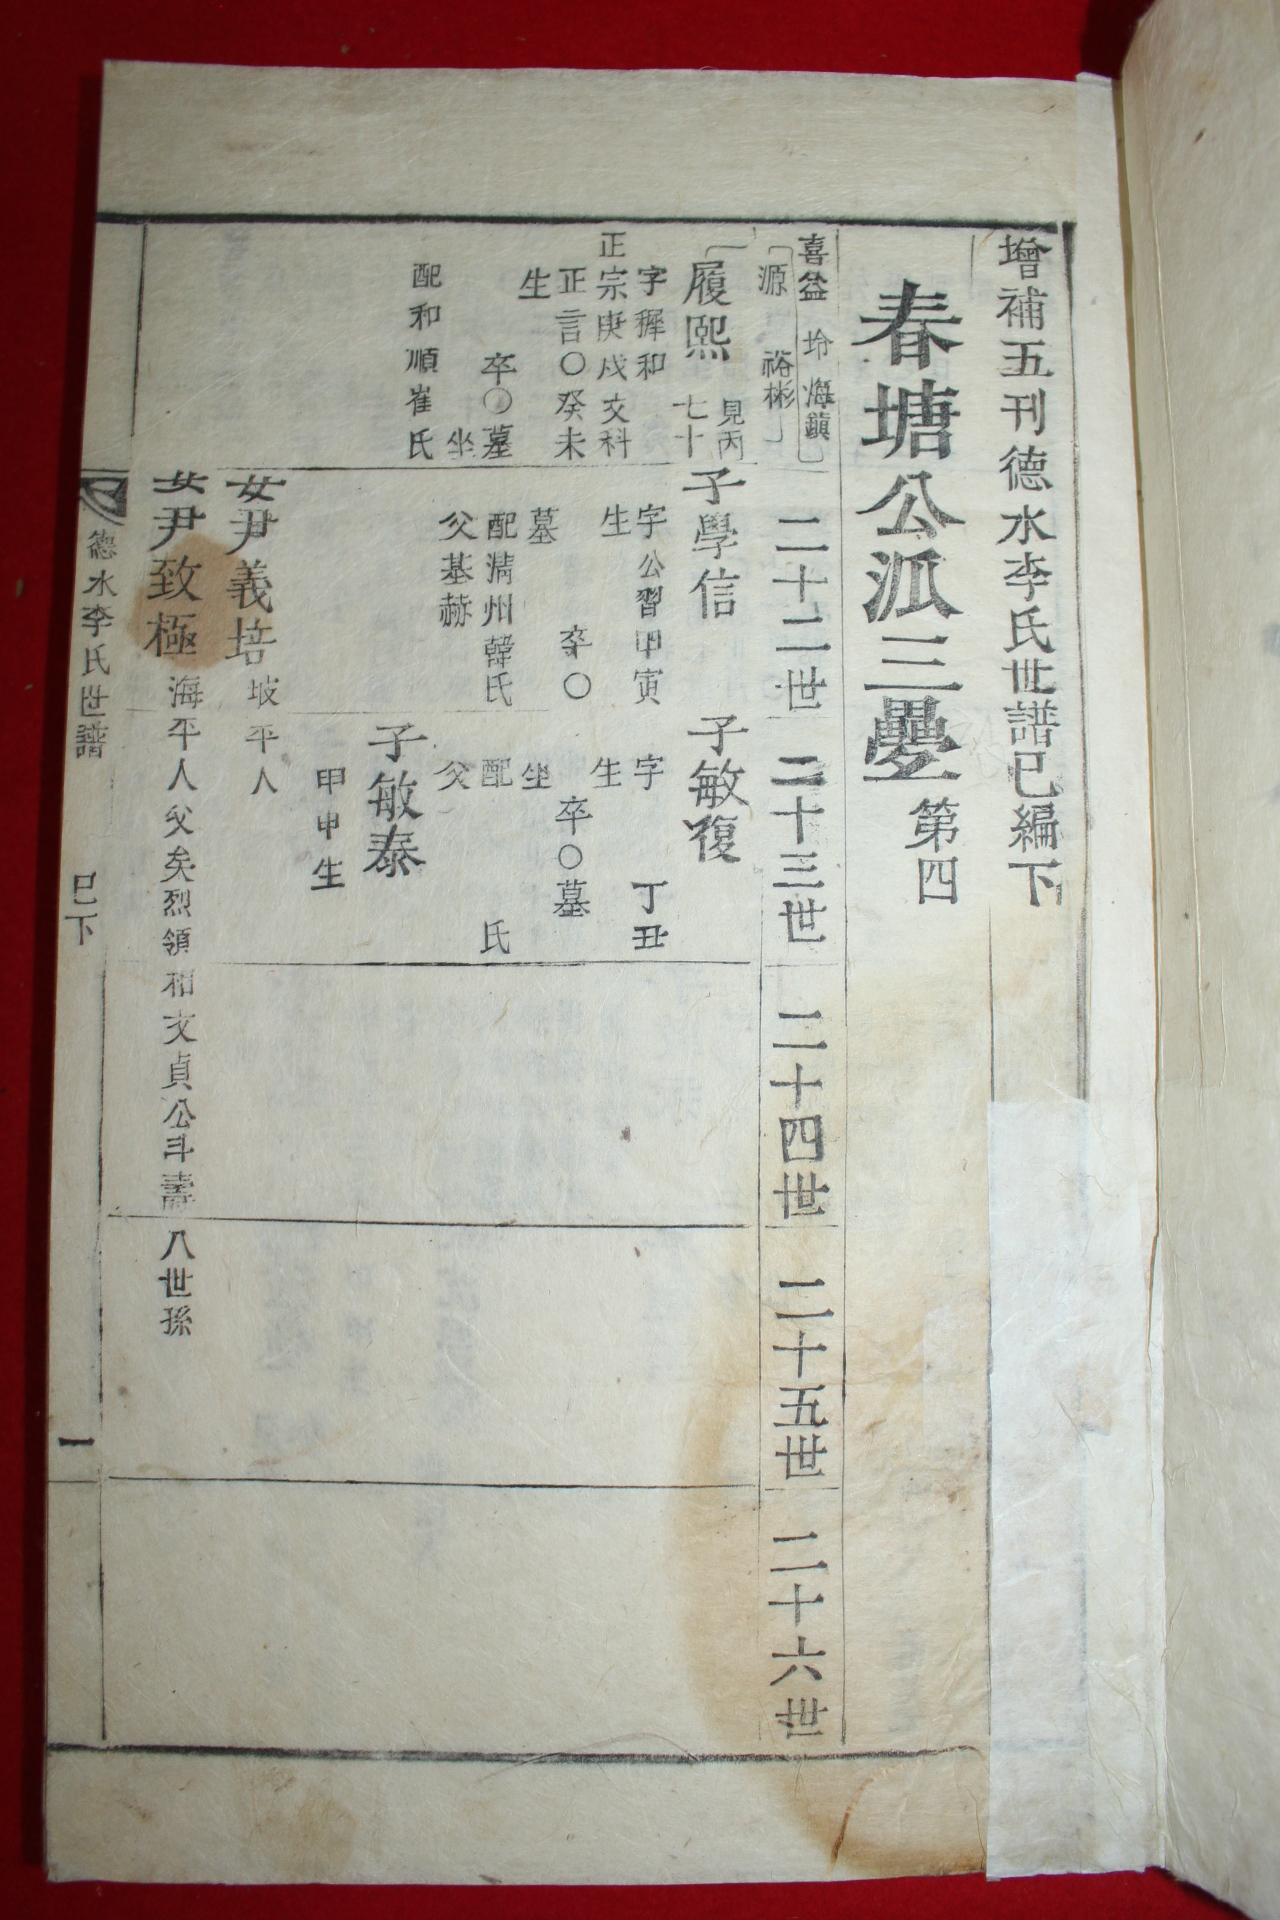 增補五刊德水李氏世譜巳編下
春塘公派三疊第四
喜益 坽 海鎮
源 裕彬
二十二世
二十三世
二十四世
二十五世
二十六世
履熙
見丙
七十
字穉和
正宗庚戌文科
正言〇癸未
生
卒〇墓
坐
配和順崔氏
子學信
字公習甲寅
生
卒〇
墓
配淸州韓氏
父基赫
子敏復
字 丁丑
生
卒〇墓
坐
配 氏
父
子敏泰
甲申生
女尹義培坡平人
女尹致極海平人父矣烈領相文貞公斗壽八世孫
德水李氏世譜 巳下 一